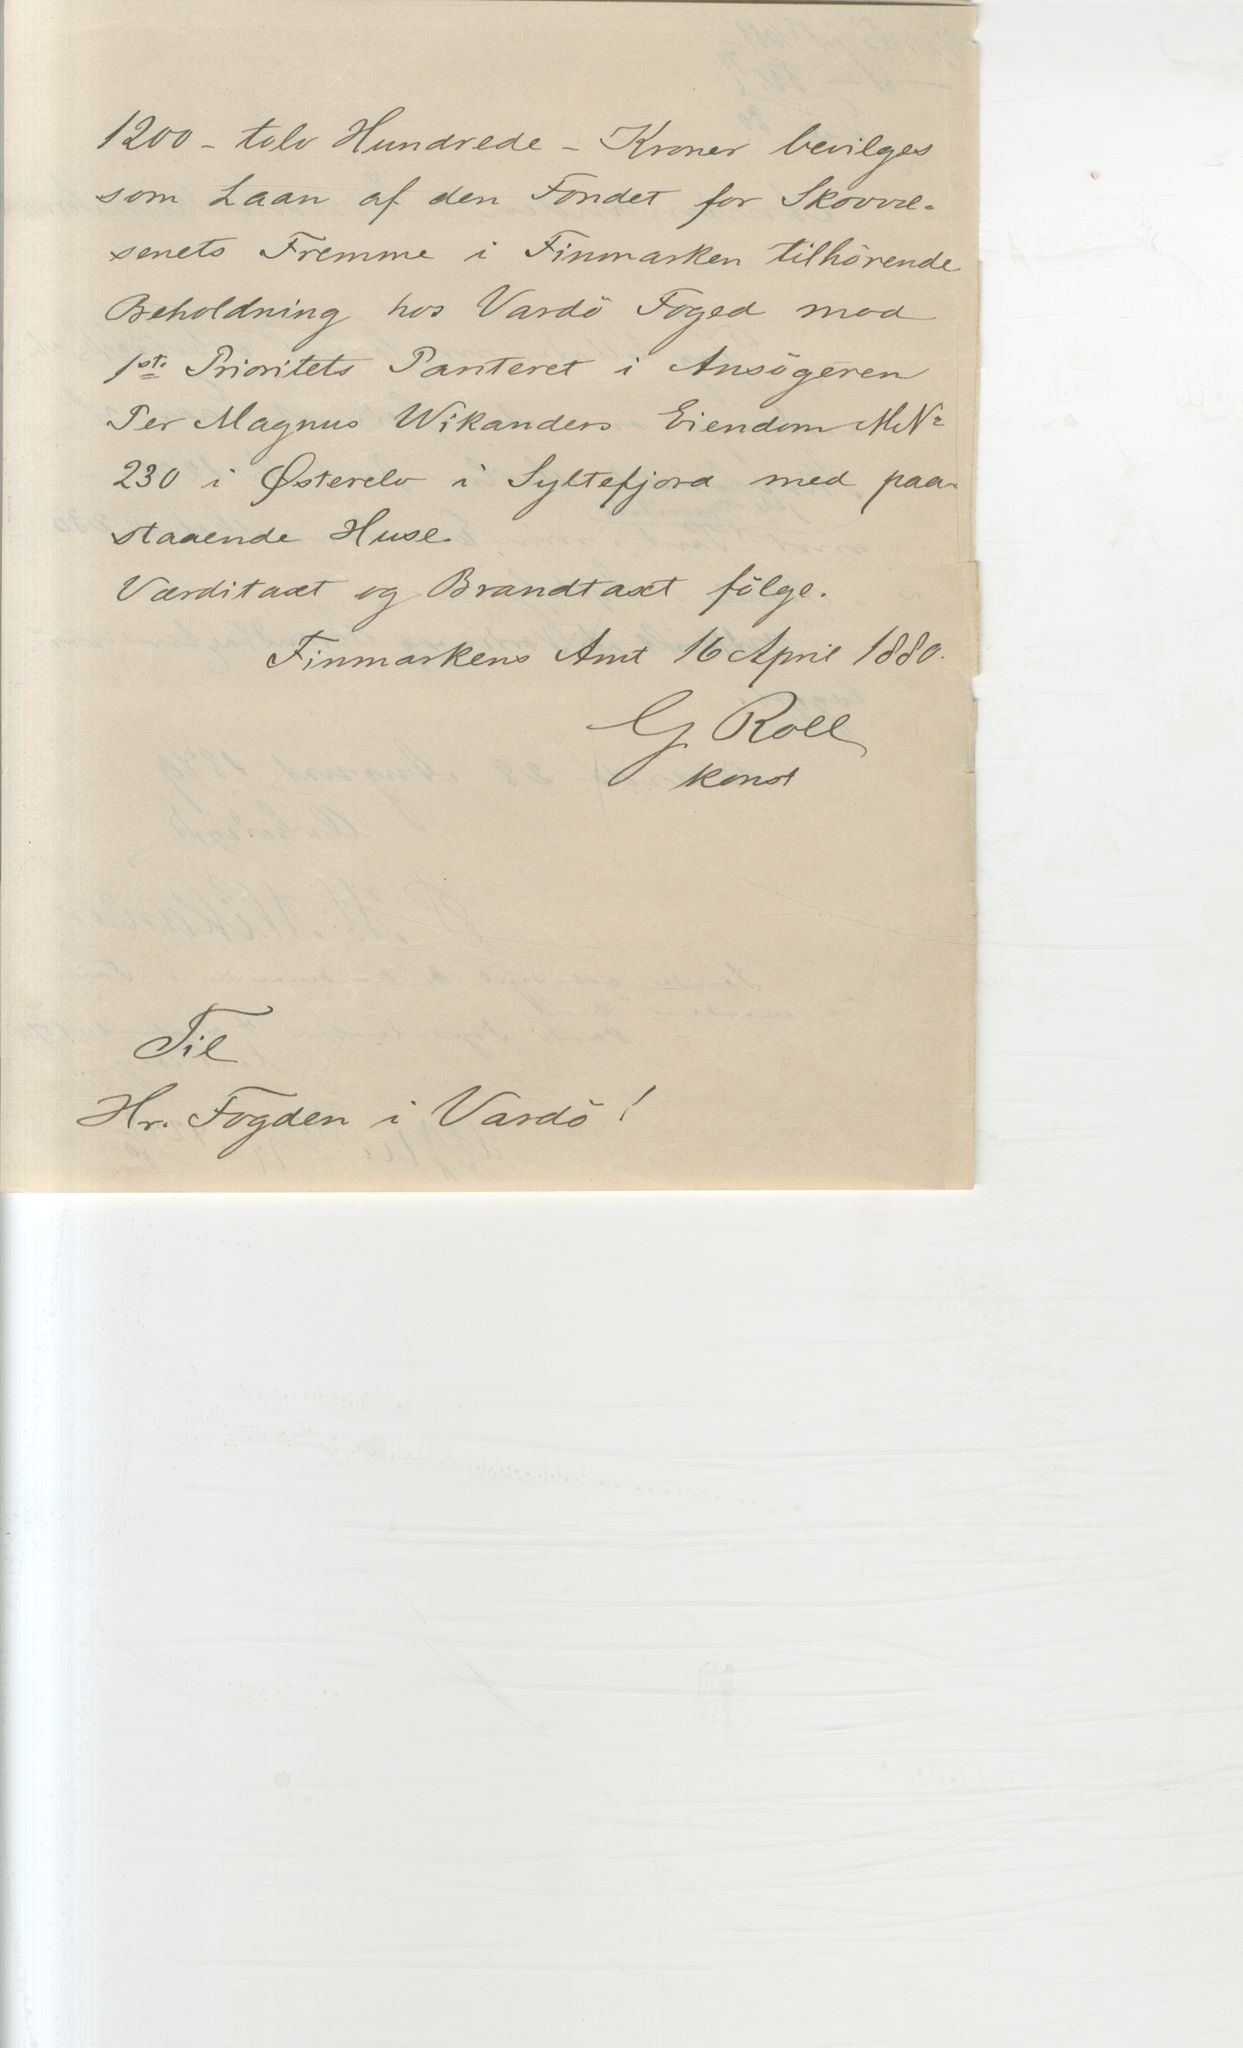 1200 - tolv Hundrede - Kroner bevilges
som Laan af den Fondet for Skovvæ-
senets Fremme i Finmarken tilhörende
Beholdning hos Vardö Foged mod
1ste Prioritets Panteret i Ansögeren
Per Magnus Wikanders Eiendom MNr
230 i Østerelv i Syltefjord med paa-
staaende Huse.
Værditaxt og Brandtaxt fölge.
Finmarkens Amt 16 April 1880.
G Roll
konst
Til
Hr. Fogden i Vardö!